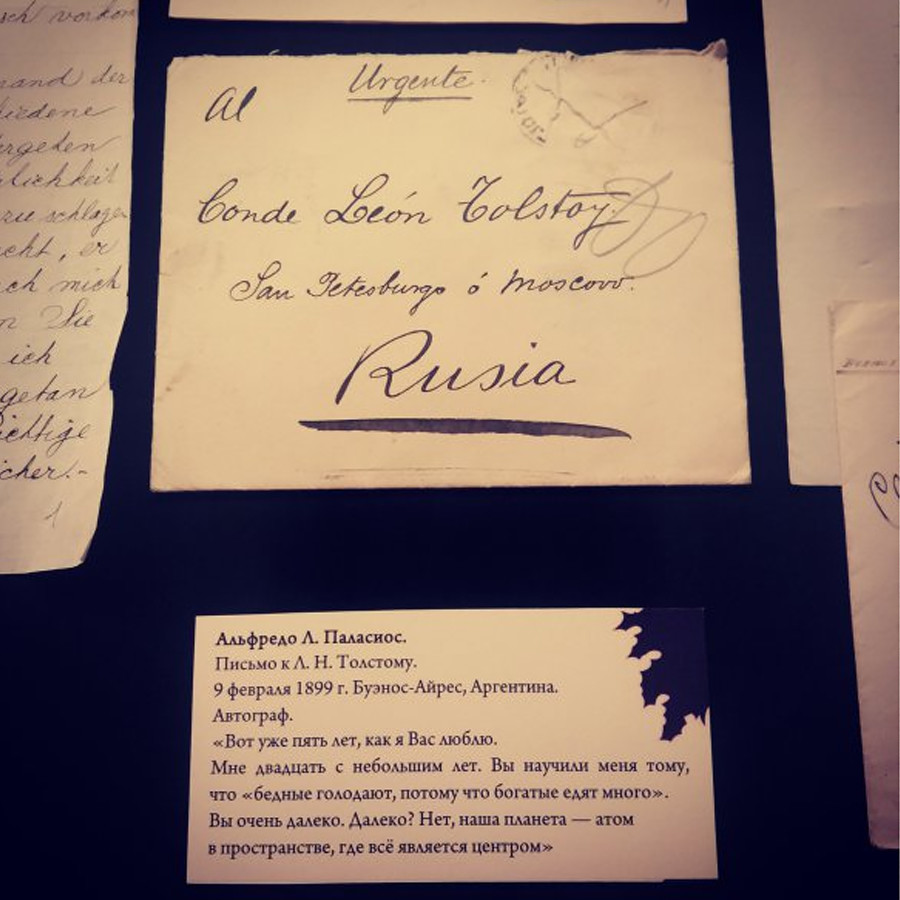 sch vorkom
hand der
hiedene
ergeben
lichkeit
zu schlagen
cht, er
ch mich
n Sie
ich
getan
ichtige
cher.-
1
Urgente.
Al
Conde León Tolstoy.
San Petesburgo ó Moscow.
Rusia
Альфредо Л. Паласиос.
Письмо к Л. Н. Толстому.
9 февраля 1899 г. Буэнос-Айрес, Аргентина.
Автограф.
«Вот уже пять лет, как я Вас люблю.
Мне двадцать с небольшим лет. Вы научили меня тому,
что «бедные голодают, потому что богатые едят много».
Вы очень далеко. Далеко? Нет, наша планета — атом
в пространстве, где всё является центром»